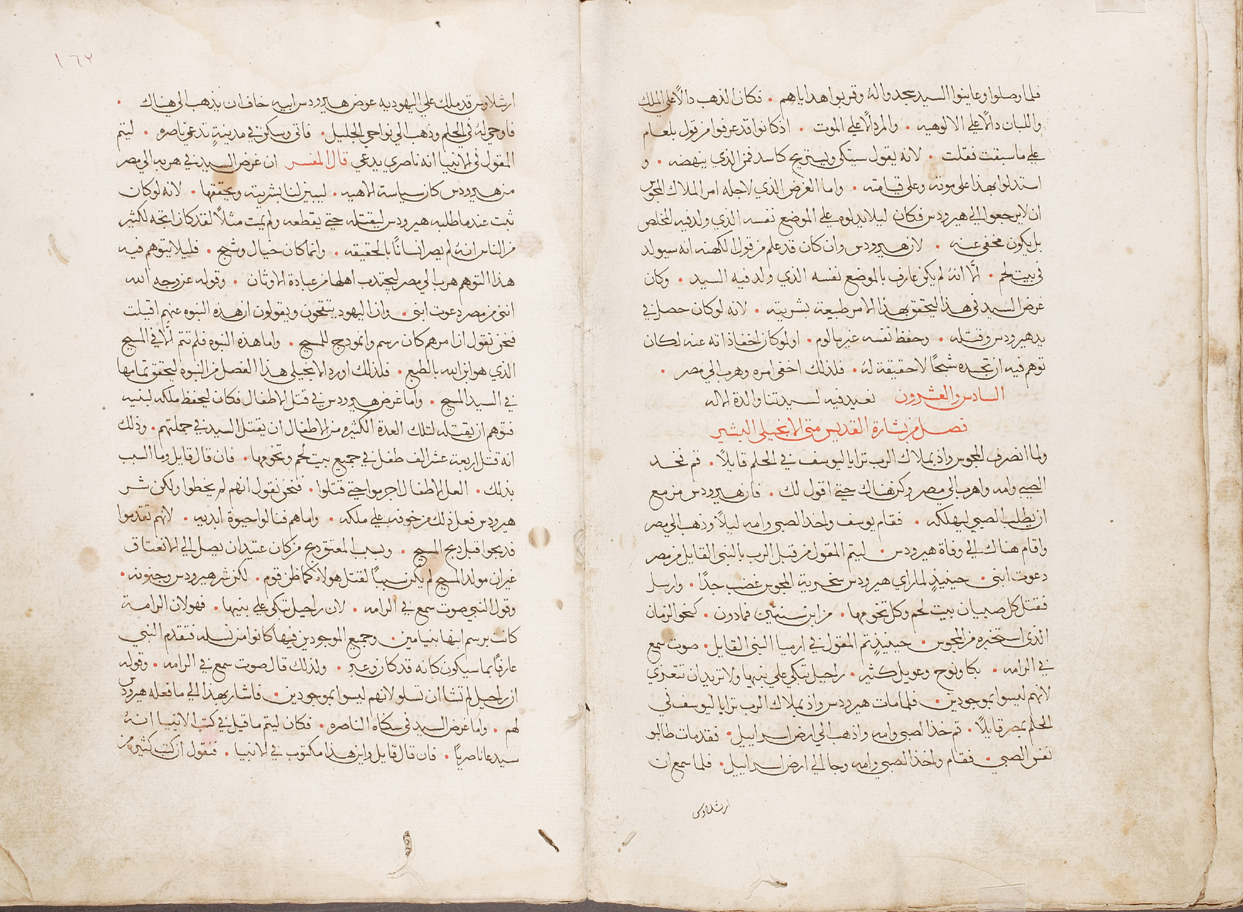 فلما وصلوا وعاينوا السيد سجدوا له وقربوا هداياهم • فكان الذهب دالًا على الملك
واللبان دالًا على الالوهيه • والمر دالًا على الموت • اذ كانوا قد عرفوا من قول بلعام
على ما سبقت فقلت • لانه يقول ستكن ويستريح كاسد فمن الذي ينهضه • و
استدلوا بهذا على موته وعلى قيامته • واما الغرض الذي لاجله امر الملاك المجوس
ان لا يرجعوا الى هيرودس فكان ليلا يدلوه على الموضع نفسه الذي ولد فيه المخلص
بل يكون مخفي عنه • لان هيرودس وان كان قد علم من قول الكهنه انه سيولد
في بيت لحم • الّا انه لم يكن عارف بالموضع نفسه الذي ولد فيه السيد • وكان
غرض السيد في هذا ليتحقق بهذا الامر طبيعة بشريته • لانه لو كان حصل في
يد هيرودس وقتله • وحفظ نفسه غير مالوم • او لو كان اخفا ذاته عنه لكان
توهم فيه ان تجسده شبحًا لا حقيقة له • فلذلك اخفى امره وهرب الى مصر •
السادس والعشرون نعيد فيه لسيدتنا والدة الاله
فصل من بشارة القديس متى الانجيلي البشير
ولما انصرف المجوس واذ بملاك الرب ترايا ليوسف في الحلم قايلًا • قم فخد
الصبي وامه واهرب الى مصر وكن هناك حتى اقول لك • فان هيرودس مزمع
ان يطلب الصبي ليهلكه • فقام يوسف واخد الصبي وامه ليلًا وذهب الى مصر
واقام هناك الى وفاة هيرودس • ليتم المقول من قبل الرب بالنبي القايل من مصر
دعوت ابني • حينيدٍ لما راى هيرودس سخرية المجوس غضب جدًا • وارسل
فقتل كل صبيان بيت لحم وكل تخومها • من ابن سنتين فما دون • كنحو الزمان
الذي استخبره من المجوس • حينيدٍ تم المقول في ارميا النبي القايل • صوت سمع
في الرامه • بكا ونوح وعويل كثير • راحيل تبكي على بنيها ولا تريد ان تتعزى
لانهم ليسوا بموجودين • فلما مات هيرودس واذ بملاك الرب ترايا ليوسف في
الحلم بمصر قايلًا • قم خد الصبي وامه واذهب الى ارض اسراييل • فقد مات طالبو
نفس الصبي • فقام واخد الصبي وامه وجا الى ارض اسراييل • فلما سمع ان
ارشلاوس
١٦٢
ارشلاوس قد ملك على اليهوديه عوض هيرودس ابيه خاف ان يذهب الى هناك •
فاوحي له في الحلم وذهب الى نواحي الجليل • فاتى وسكن في مدينةٍ تدعى ناصره • ليتم
المقول في الانبيا انه ناصري يدعى قال المفسر ان غرض السيد في هربه الى مصر
من هيرودس كان سياسة الاهيه • ليبين لنا بشريته ويحققها • لانه لو كان
ثبت عندما طلبه هيرودس ليقتله حتى يقطعه ولم يمت مثلًا لقد كان اتجه لكثير
من الناس انه لم يصر انسانًا بالحقيقه • وانما كان خيال وشبح • فليلا يتوهم فيه
هذا التوهم هرب الى مصر ليجتدب اهلها من عبادة الاوثان • وقوله عن وجه الله
انني من مصر دعوت ابني • وان اليهود يتقحون ويقولون ان هذه النبوه عنهم اقيلت
فنحن نقول ان امرهم كان رسم وانمودج للمسيح • واما هذه النبوه فلم تتم الّا في المسيح
الذي هو ابن الله بالطبع • فلذلك اورد الانجيلي هذا الفصل من النبوه ليحقق تمامها
في السيد المسيح • واما غرض هيرودس في قتل الاطفال فكان ليحفظ ملكه لبنيه
فتوهم ان بقتله لتلك العدة الكثيره من الاطفال ان يقتل السيد في جملتهم • وذلك
انه قتل اربعة عشر الف طفل في جميع بيت لحم وتخومها • فان قال قايل وما السبب
بذلك • العل الاطفال اجرموا حتى قتلوا • فنحن نقول انهم لم يخطوا ولكن شر
هيرودس فعل ذلك من خوفه على ملكه • واما هم فنالوا حيوة ابديه • لانهم تقدموا
قد دبحوا قبل دبح المسيح • وبسبب المعتق دبح من كان عتيدان يصل الى الانعتاق
غير ان مولد المسيح لم يكن سببًا لقتل هولاء كما ظن قوم • لكن شر هيرودس وجنونه •
وقول النبي صوت سمع في الرامه • لان راحيل تبكي على بنيها • فهو لان الرامة
كانت برسم ابنها بنيامين • وجميع الموجودين فيها كانوا من نسله فتقدم النبي
عارفًا بما سيكون كانه قد كان وعبر • ولذلك قال صوت سمع في الرامه • وقوله
ان راحيل لم تشا ان تسلو لانهم ليسوا بموجودين • فاشار بهذا الى ما فعله هيرودس
لهم • واما غرض السيد في سكناه الناصره • فكان ليتم ما قيل في كتب الانبيا انه
سيدعا ناصريًا • فان قال قايل واين هذا مكتوب في الانبيا • فنقول ان كتب كثيره من